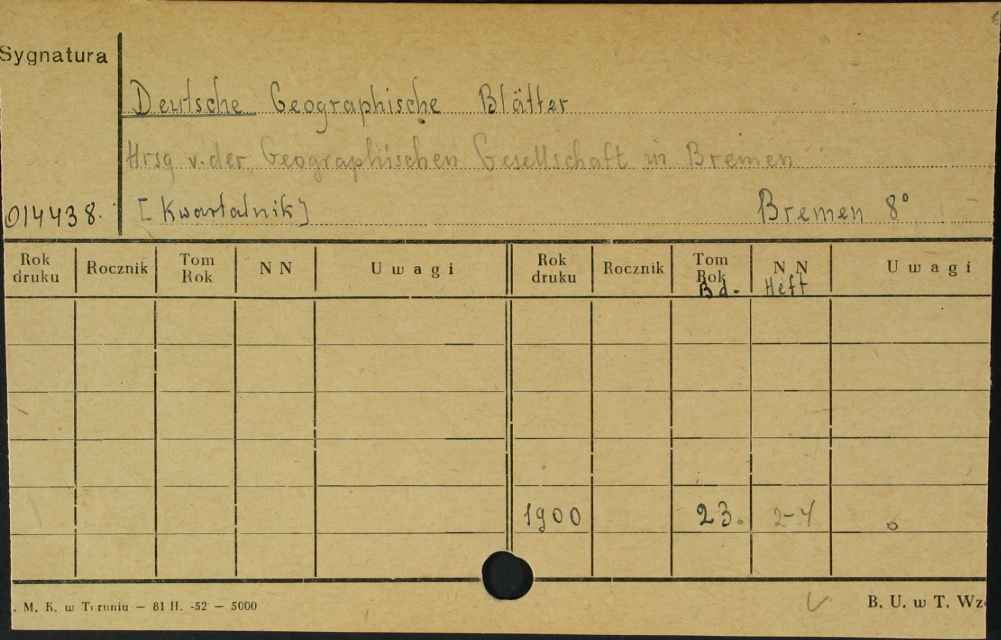 Sygnatura
Deutsche Geographische Blätter
Hrsg v. der Geographischen Gesellschaft in Bremen
014438. [Kwartalnik] Bremen 8°
Rok druku Rocznik Tom Rok N N Uwagi Rok druku Rocznik Tom Rok Bd. N N Heft Uwagi
1900 23. 2-4
. M. K. w Toruniu — 81 H. -52 — 5000 B. U. w T. Wz